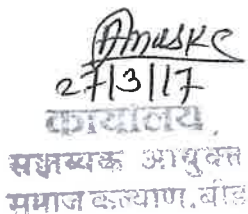 27/3/17
कार्यालय,
सहाय्यक आयुक्त
समाज कल्याण, बीड